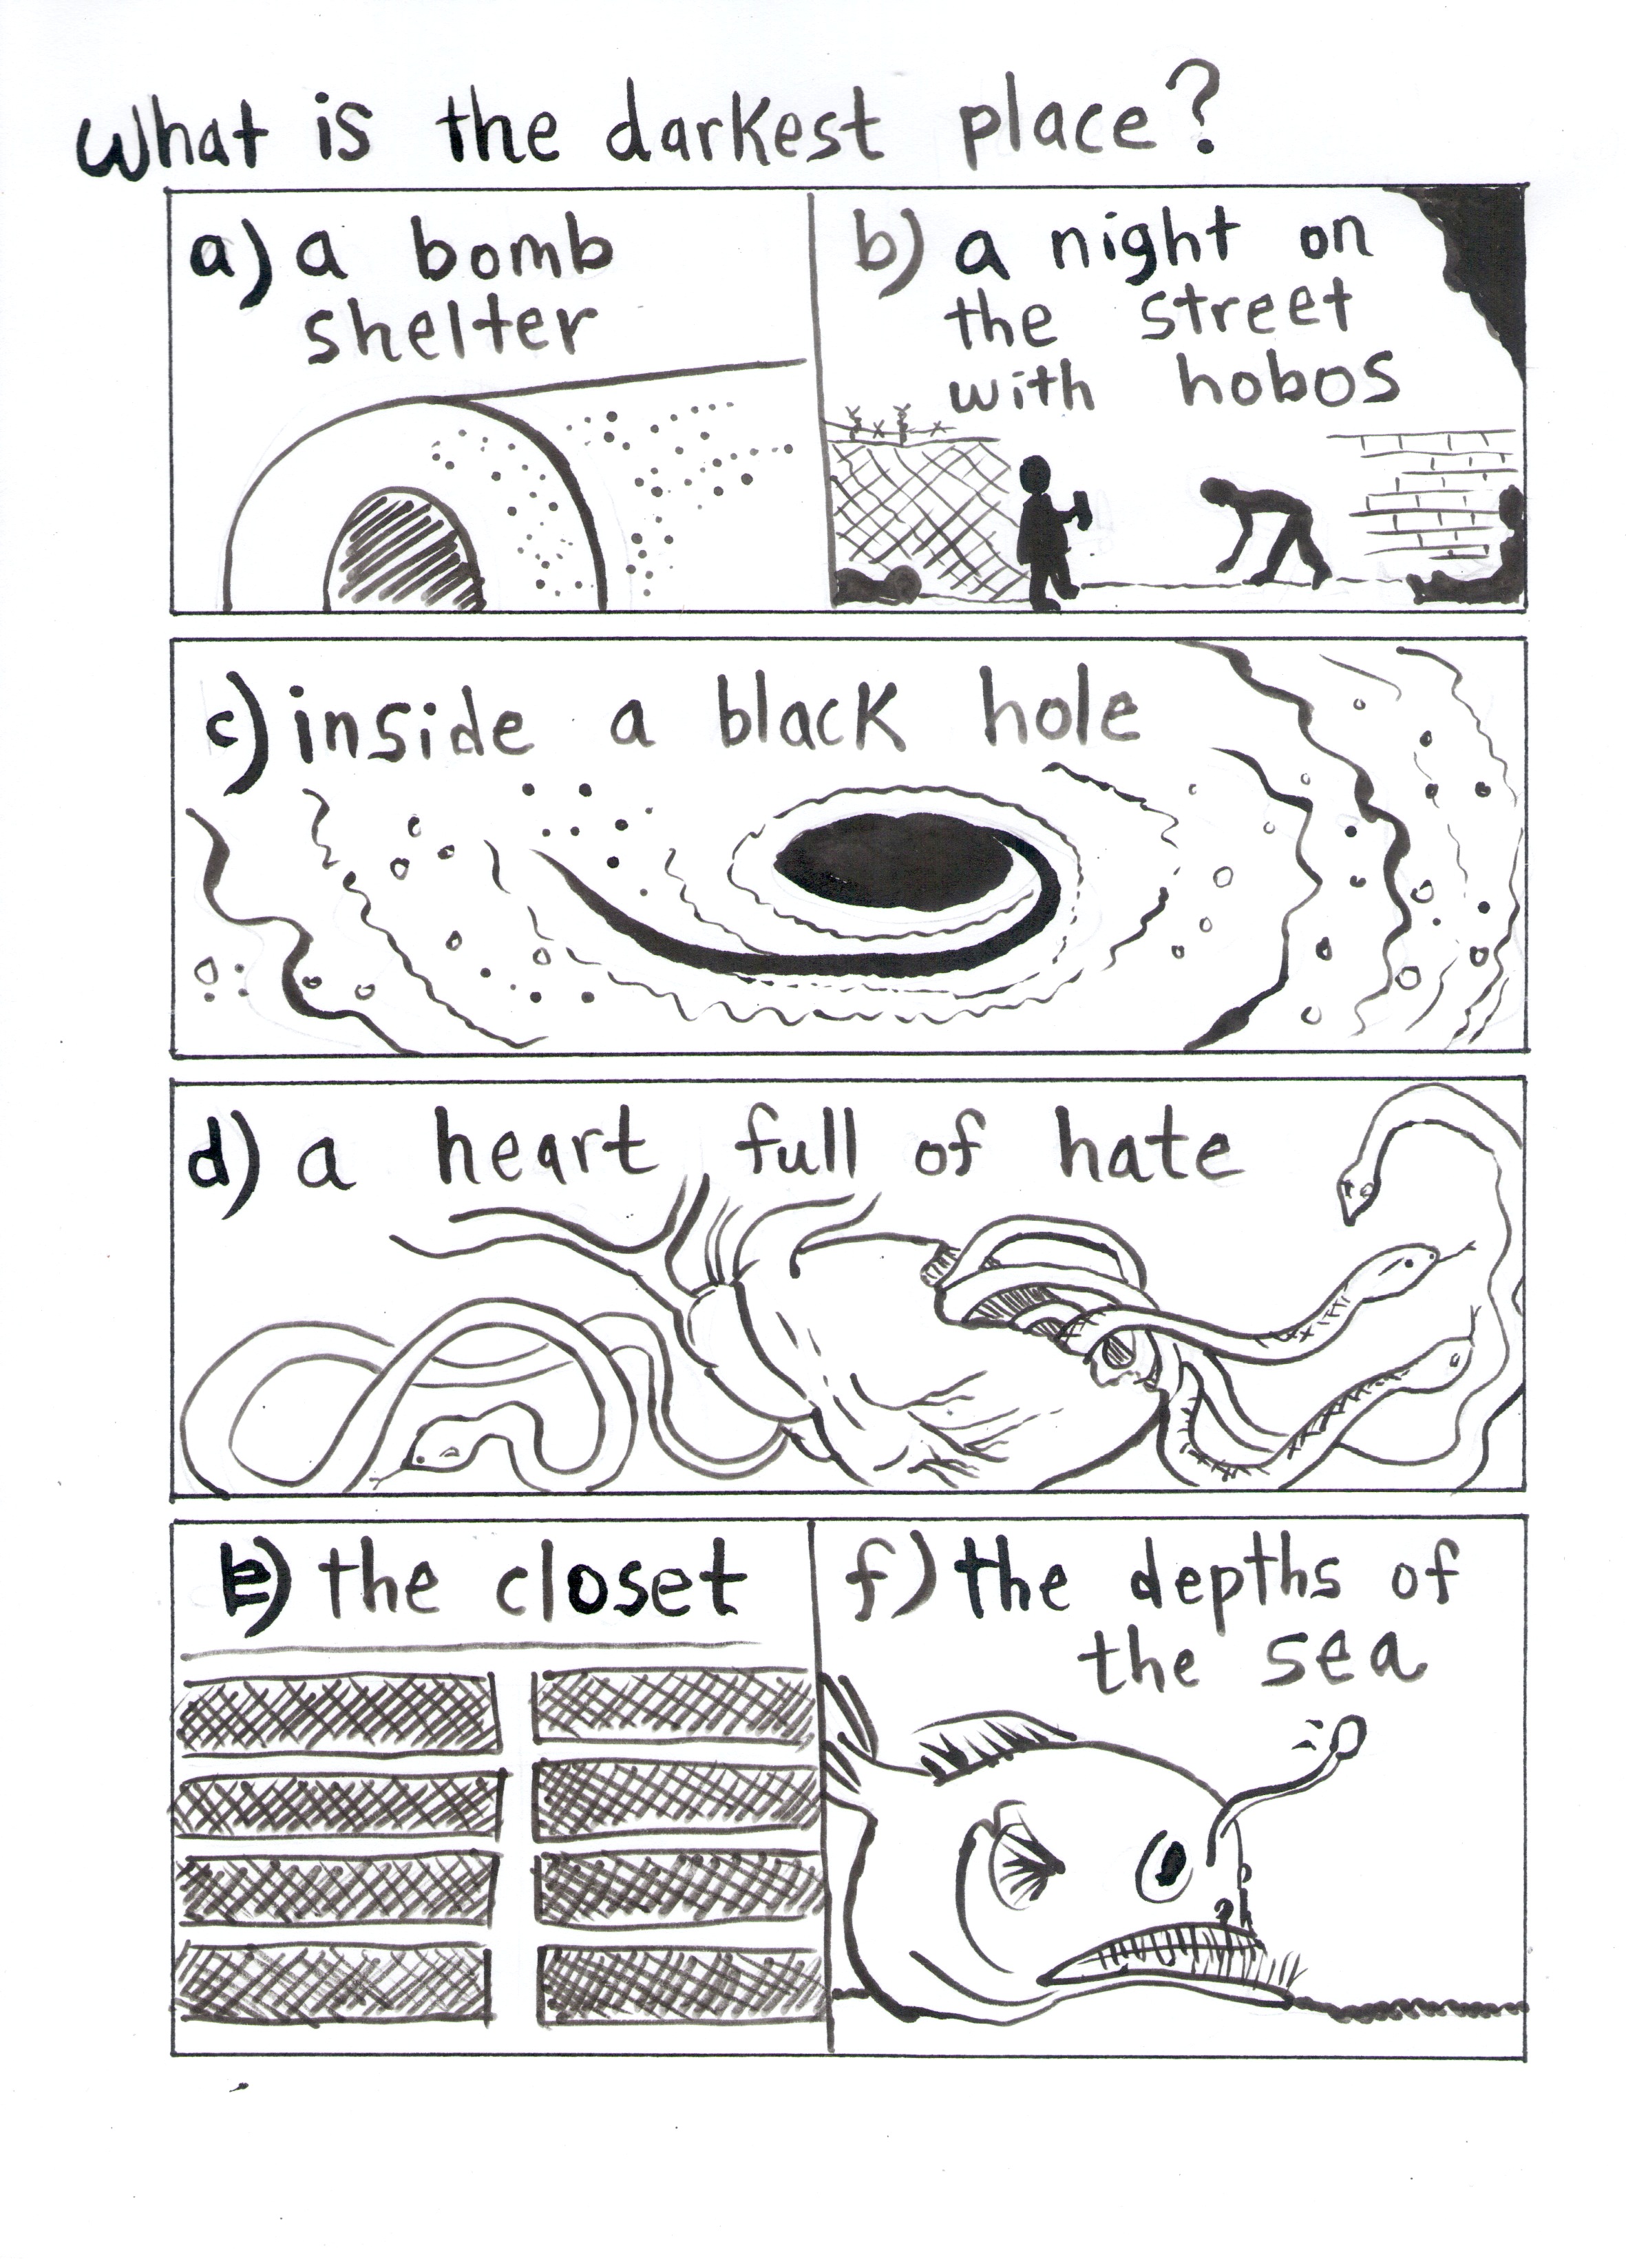 What is the darkest place?
a) a bomb
shelter
b) a night on
the street
with hobos
c) inside a black hole
d) a heart full of hate
E) the closet
f) the depths of
the sea